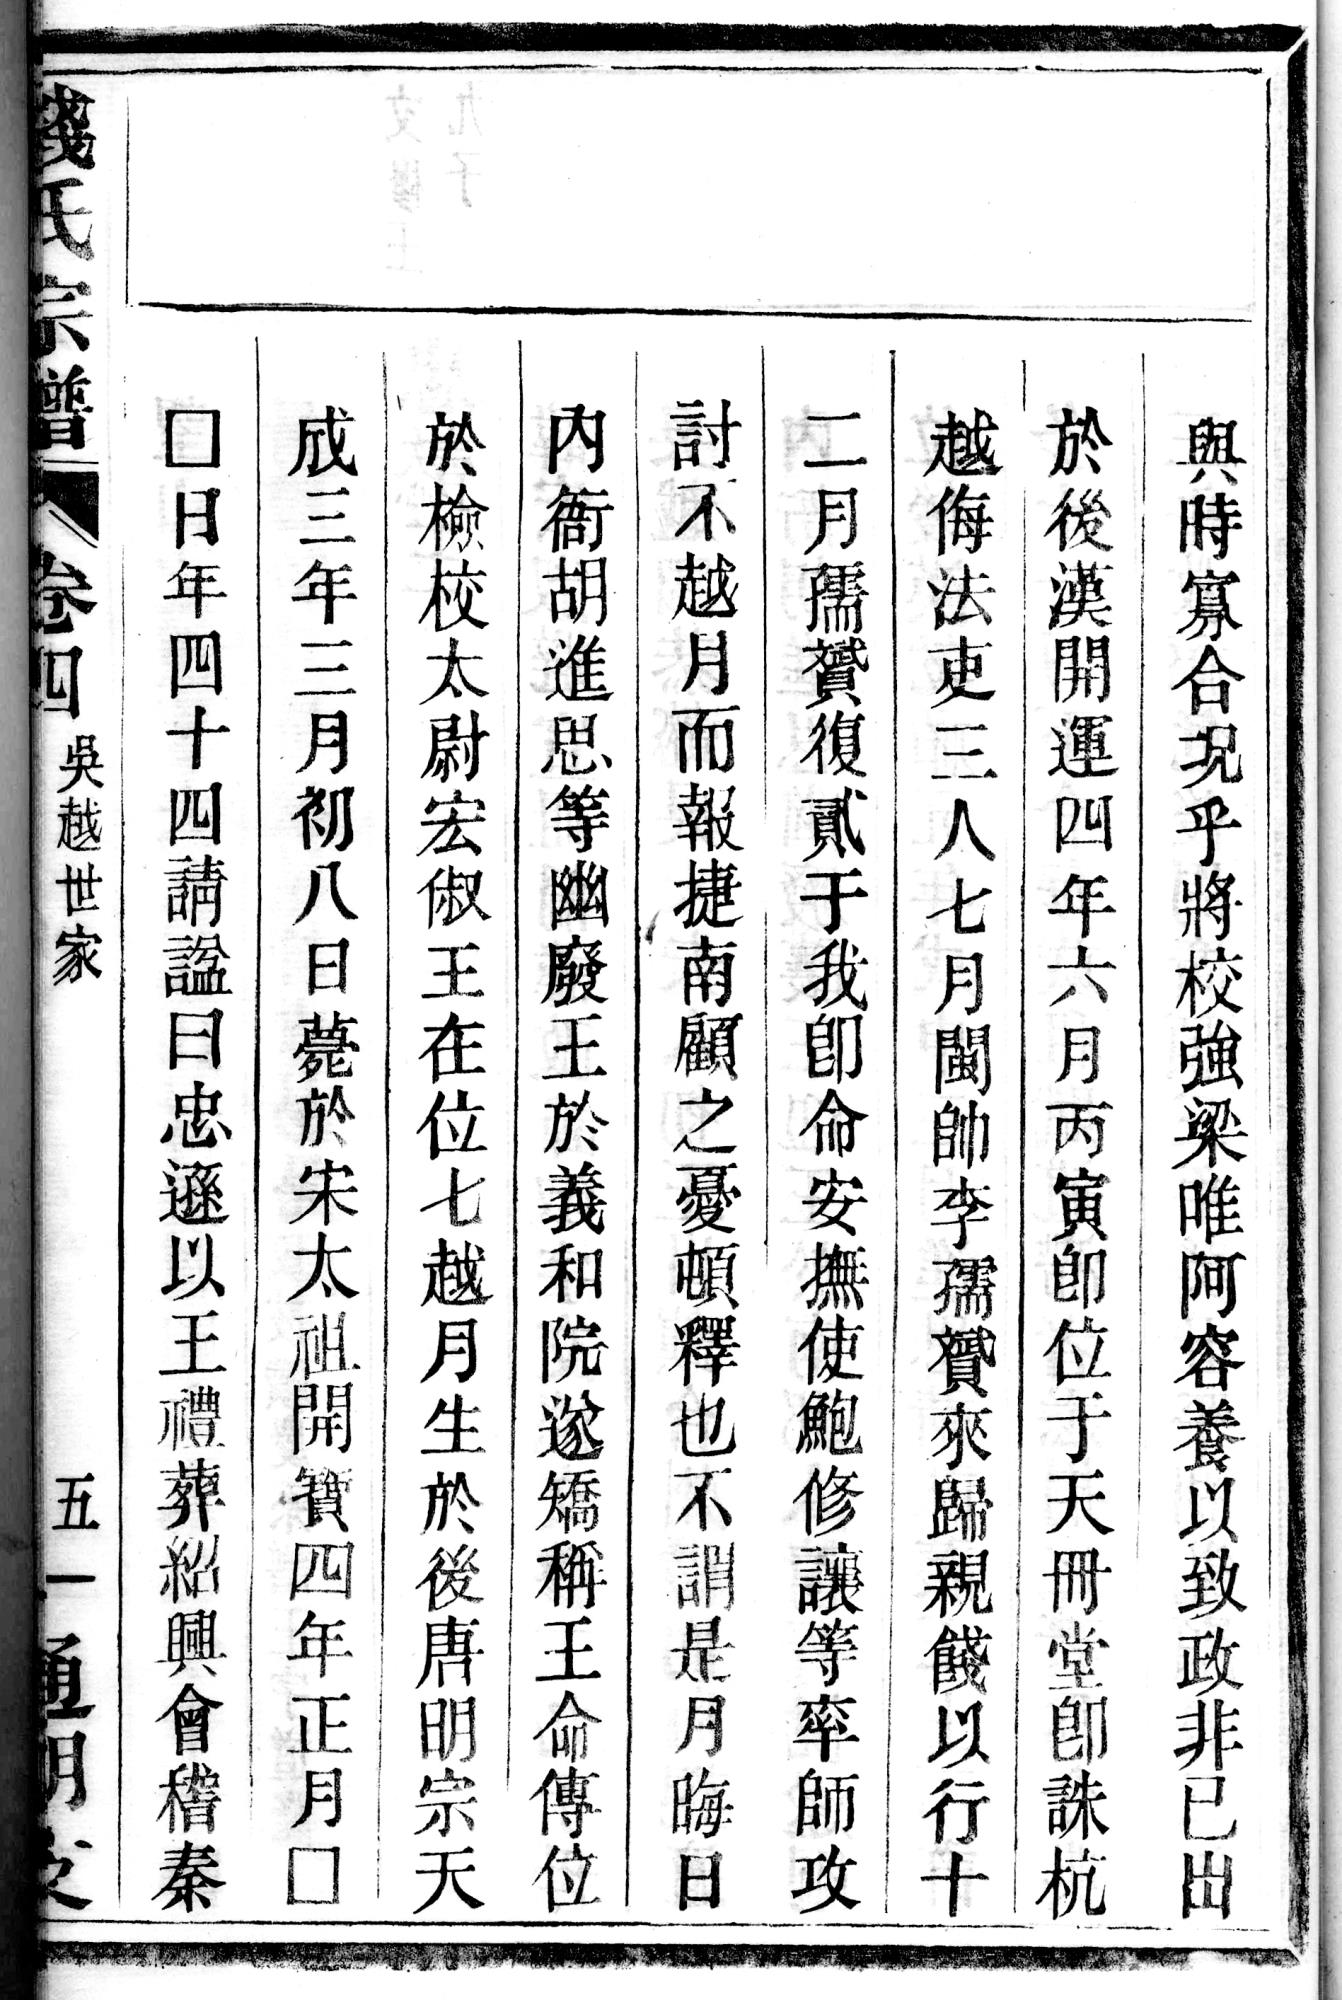 與時寡合況乎將校強梁唯阿容養以致政非已出
於後漢開運四年六月丙寅卽位于天冊堂卽誅杭
越侮法吏三人七月閩帥李孺贇來歸親餞以行十
二月孺贇復貳于我卽命安撫使鮑修讓等率師攻
討不越月而報捷南顧之憂頓釋也不謂是月晦日
內衙胡進思等幽廢王於義和院遂矯稱王命傳位
於檢校太尉宏俶王在位七越月生於後唐明宗天
成三年三月初八日薨於宋太祖開寶四年正月□
□日年四十四請諡曰忠遜以王禮葬紹興會稽秦
錢氏宗譜 卷四 吳越世家 五一 通明支